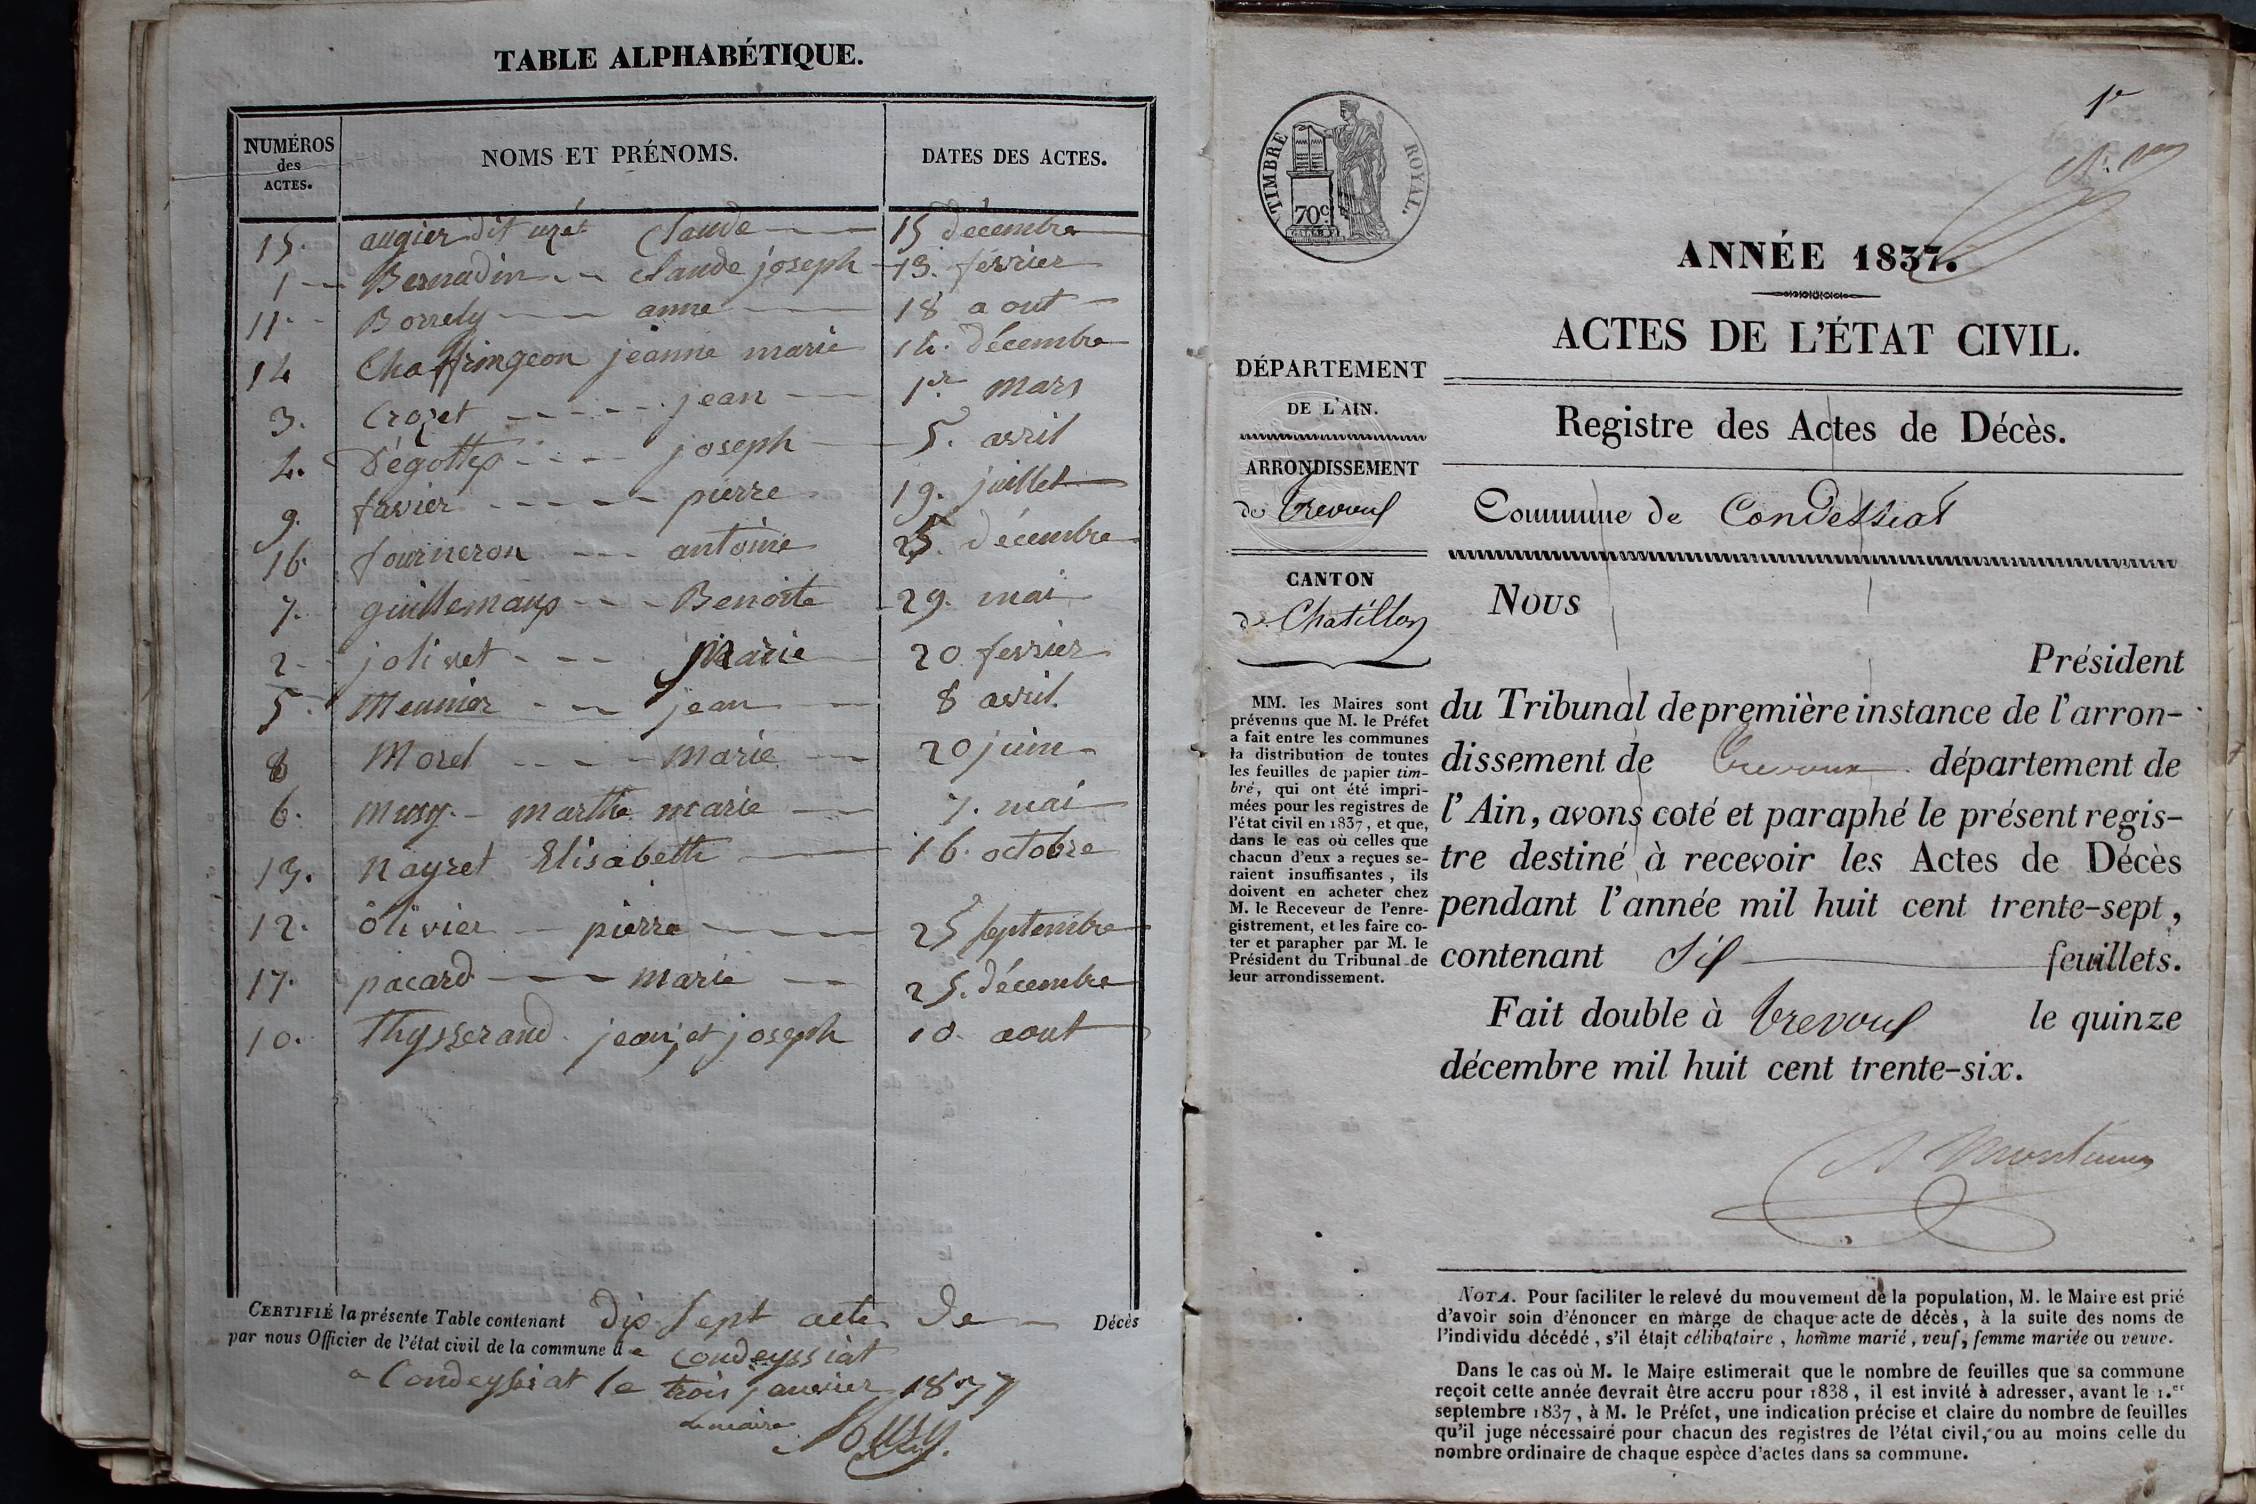 TABLE ALPHABÉTIQUE.
NUMÉROS des ACTES.
NOMS ET PRÉNOMS.
DATES DES ACTES.
15. augier dit uzét Claude 15 décembre
1 Bernadin claude joseph 13. février
11. Borrely anne 18 aout
14 Chaffringeon jeanne marie 14. décembre
3. Crozet jean 1er mars
4. Dégottex joseph 5. avril
9. favier pierre 19. juillet
16. fourneron antoine 25. décembre
7. guillemaux Benoite 29. mai
2 jolivet Marie 20 fevrier
5 Meunier jean 8 avril.
8 Morel marie 20 juin
6. musy. marthe marie 7. mai
13. Nayret Elisabeth 16. octobre
12. olivier pierre 25 septembre
17. pacard marie 25. décembre
10. Thysserand jean et joseph 10. aout
CERTIFIÉ la présente Table contenant dix sept actes de Décès
par nous Officier de l'état civil de la commune de condeyssiat
a Condeyssiat le trois janvier 1837
le maire
Musy
1er
TIMBRE ROYAL.
70c
ANNÉE 1837.
ACTES DE L'ÉTAT CIVIL.
DÉPARTEMENT
DE L'AIN.
ARRONDISSEMENT
de Trevoux
CANTON
de Chatillon
MM. les Maires sont
prévenus que M. le Préfet
a fait entre les communes
la distribution de toutes
les feuilles de papier tim-
bré, qui ont été impri-
mées pour les registres de
l'état civil en 1837, et que,
dans le cas où celles que
chacun d'eux a reçues se-
raient insuffisantes, ils
doivent en acheter chez
M. le Receveur de l'enre-
gistrement, et les faire co-
ter et parapher par M. le
Président du Tribunal de
leur arrondissement.
Registre des Actes de Décès.
Commune de Condessiat
Nous
Président
du Tribunal de première instance de l'arron-
dissement de Trevoux département de
l'Ain, avons coté et paraphé le présent regis-
tre destiné à recevoir les Actes de Décès
pendant l'année mil huit cent trente-sept,
contenant Six feuillets.
Fait double à Trevoux le quinze
décembre mil huit cent trente-six.
NOTA. Pour faciliter le relevé du mouvement de la population, M. le Maire est prié
d'avoir soin d'énoncer en marge de chaque acte de décès, à la suite des noms de
l'individu décédé, s'il était célibataire, homme marié, veuf, femme mariée ou veuve.
Dans le cas où M. le Maire estimerait que le nombre de feuilles que sa commune
reçoit cette année devrait être accru pour 1838, il est invité à adresser, avant le 1.er
septembre 1837, à M. le Préfet, une indication précise et claire du nombre de feuilles
qu'il juge nécessaire pour chacun des registres de l'état civil, ou au moins celle du
nombre ordinaire de chaque espèce d'actes dans sa commune.